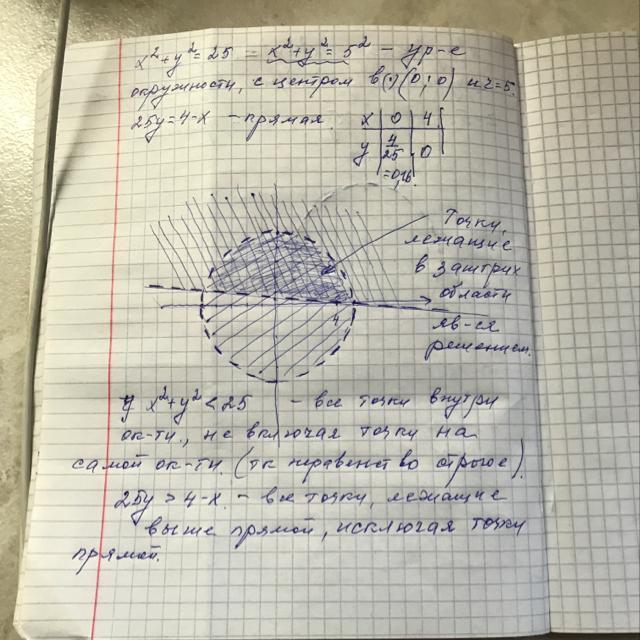 x²+y²=25 = x²+y²=5² - ур-е
окружности, с центром в(·)(0;0) и r=5.
25y=4-x - прямая.
x | 0 | 4
y | 4/25 | 0
=0,16.
Точки,
лежащие
в заштрих
области
яв-ся
решением.
4
y x²+y²<25 - все точки внутри
ок-ти., не включая точки на
самой ок-ти. (тк неравенство строгое).
25y>4-x. - все точки, лежащие
выше прямой, исключая точки
прямой.